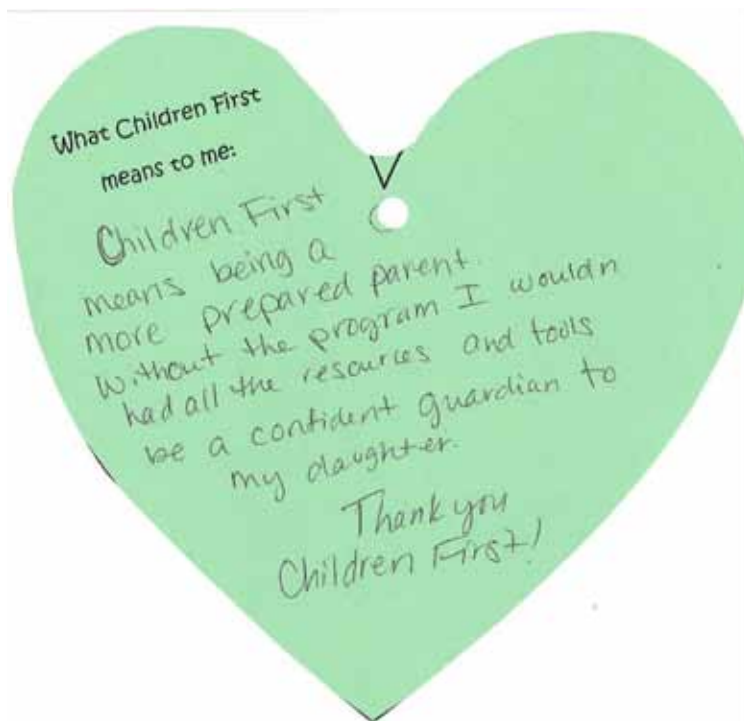 What Children First
means to me:
Children First
means being a
more prepared parent.
Without the program I wouldn
had all the resources and tools
be a confident guardian to
my daughter.
Thank you
Children First!